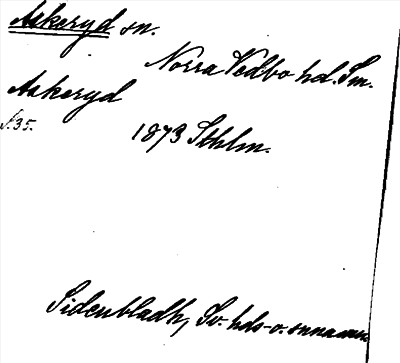 Askeryd sn.
Norra Vedbo hd. Sm.
Askeryd
s. 35.
1873 Sthlm.
Sidenbladh, Sv. hds- o. snnamn